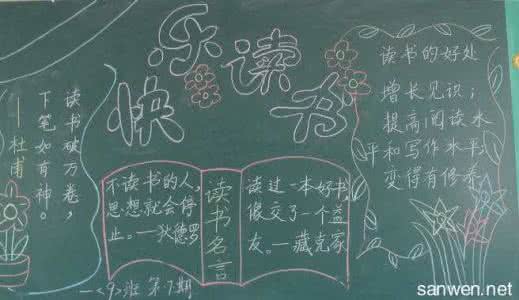 快乐读书
读书破万卷，
下笔如有神。
——杜甫
不读书的人，
思想就会停
止。—狄德罗
读书名言
读过一本好书，
像交了一个益
友。—臧克家
读书的好处
增长见识；
提高阅读水
平和写作水平；
变得有修养
一<9>班 第7期
sanwen.net